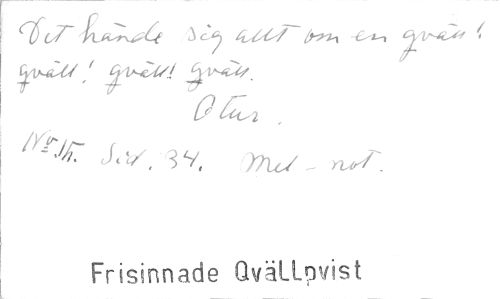 Det hände sig allt om en qväll!
qväll! qväll! qväll.
Otur.
Sid. 34. Mel-not.
Frisinnade Qvällpvist